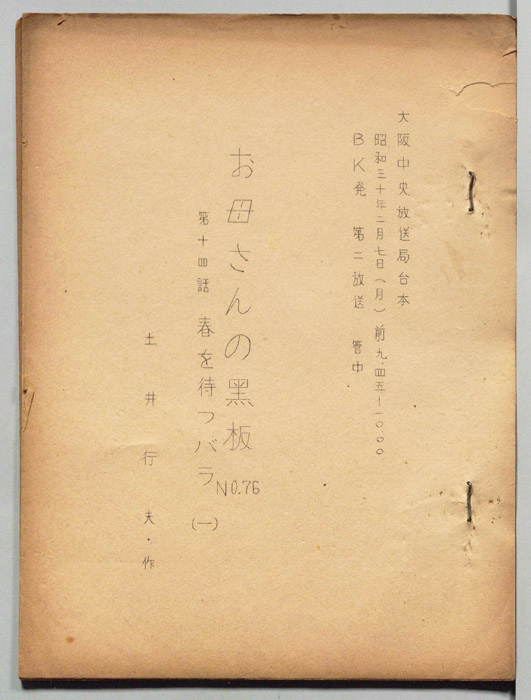 大阪中央放送局台本
昭和三十年二月七日(月) 前九.四五ー一〇.〇〇
BK発 第二放送 管中
お母さんの黒板 NO.76
第十四話 春を待つバラ (一)
土井行夫・作